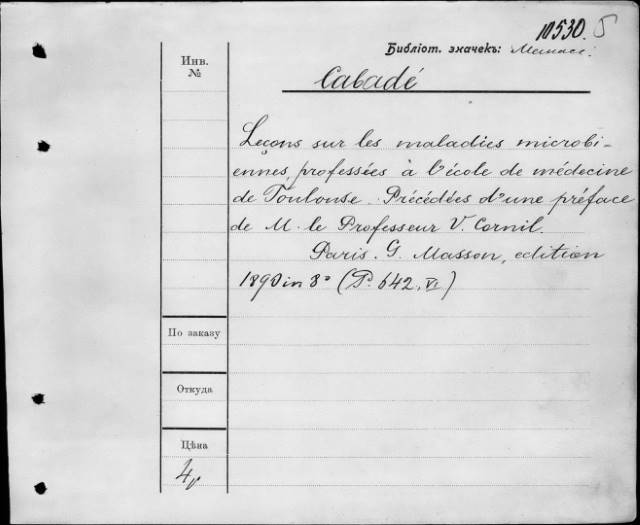 10530. 5
Библіот. значекъ:
Инв.
№
Cabadé
Leçons sur les maladies microbi-
ennes, professées à l'école de médecine
de Toulouse. Précédées d'une préface
de M. le Professeur V. Cornil.
Paris. G. Masson, edition
1890 in 8° (P. 642, VI)
По заказу
Откуда
Цѣна
4